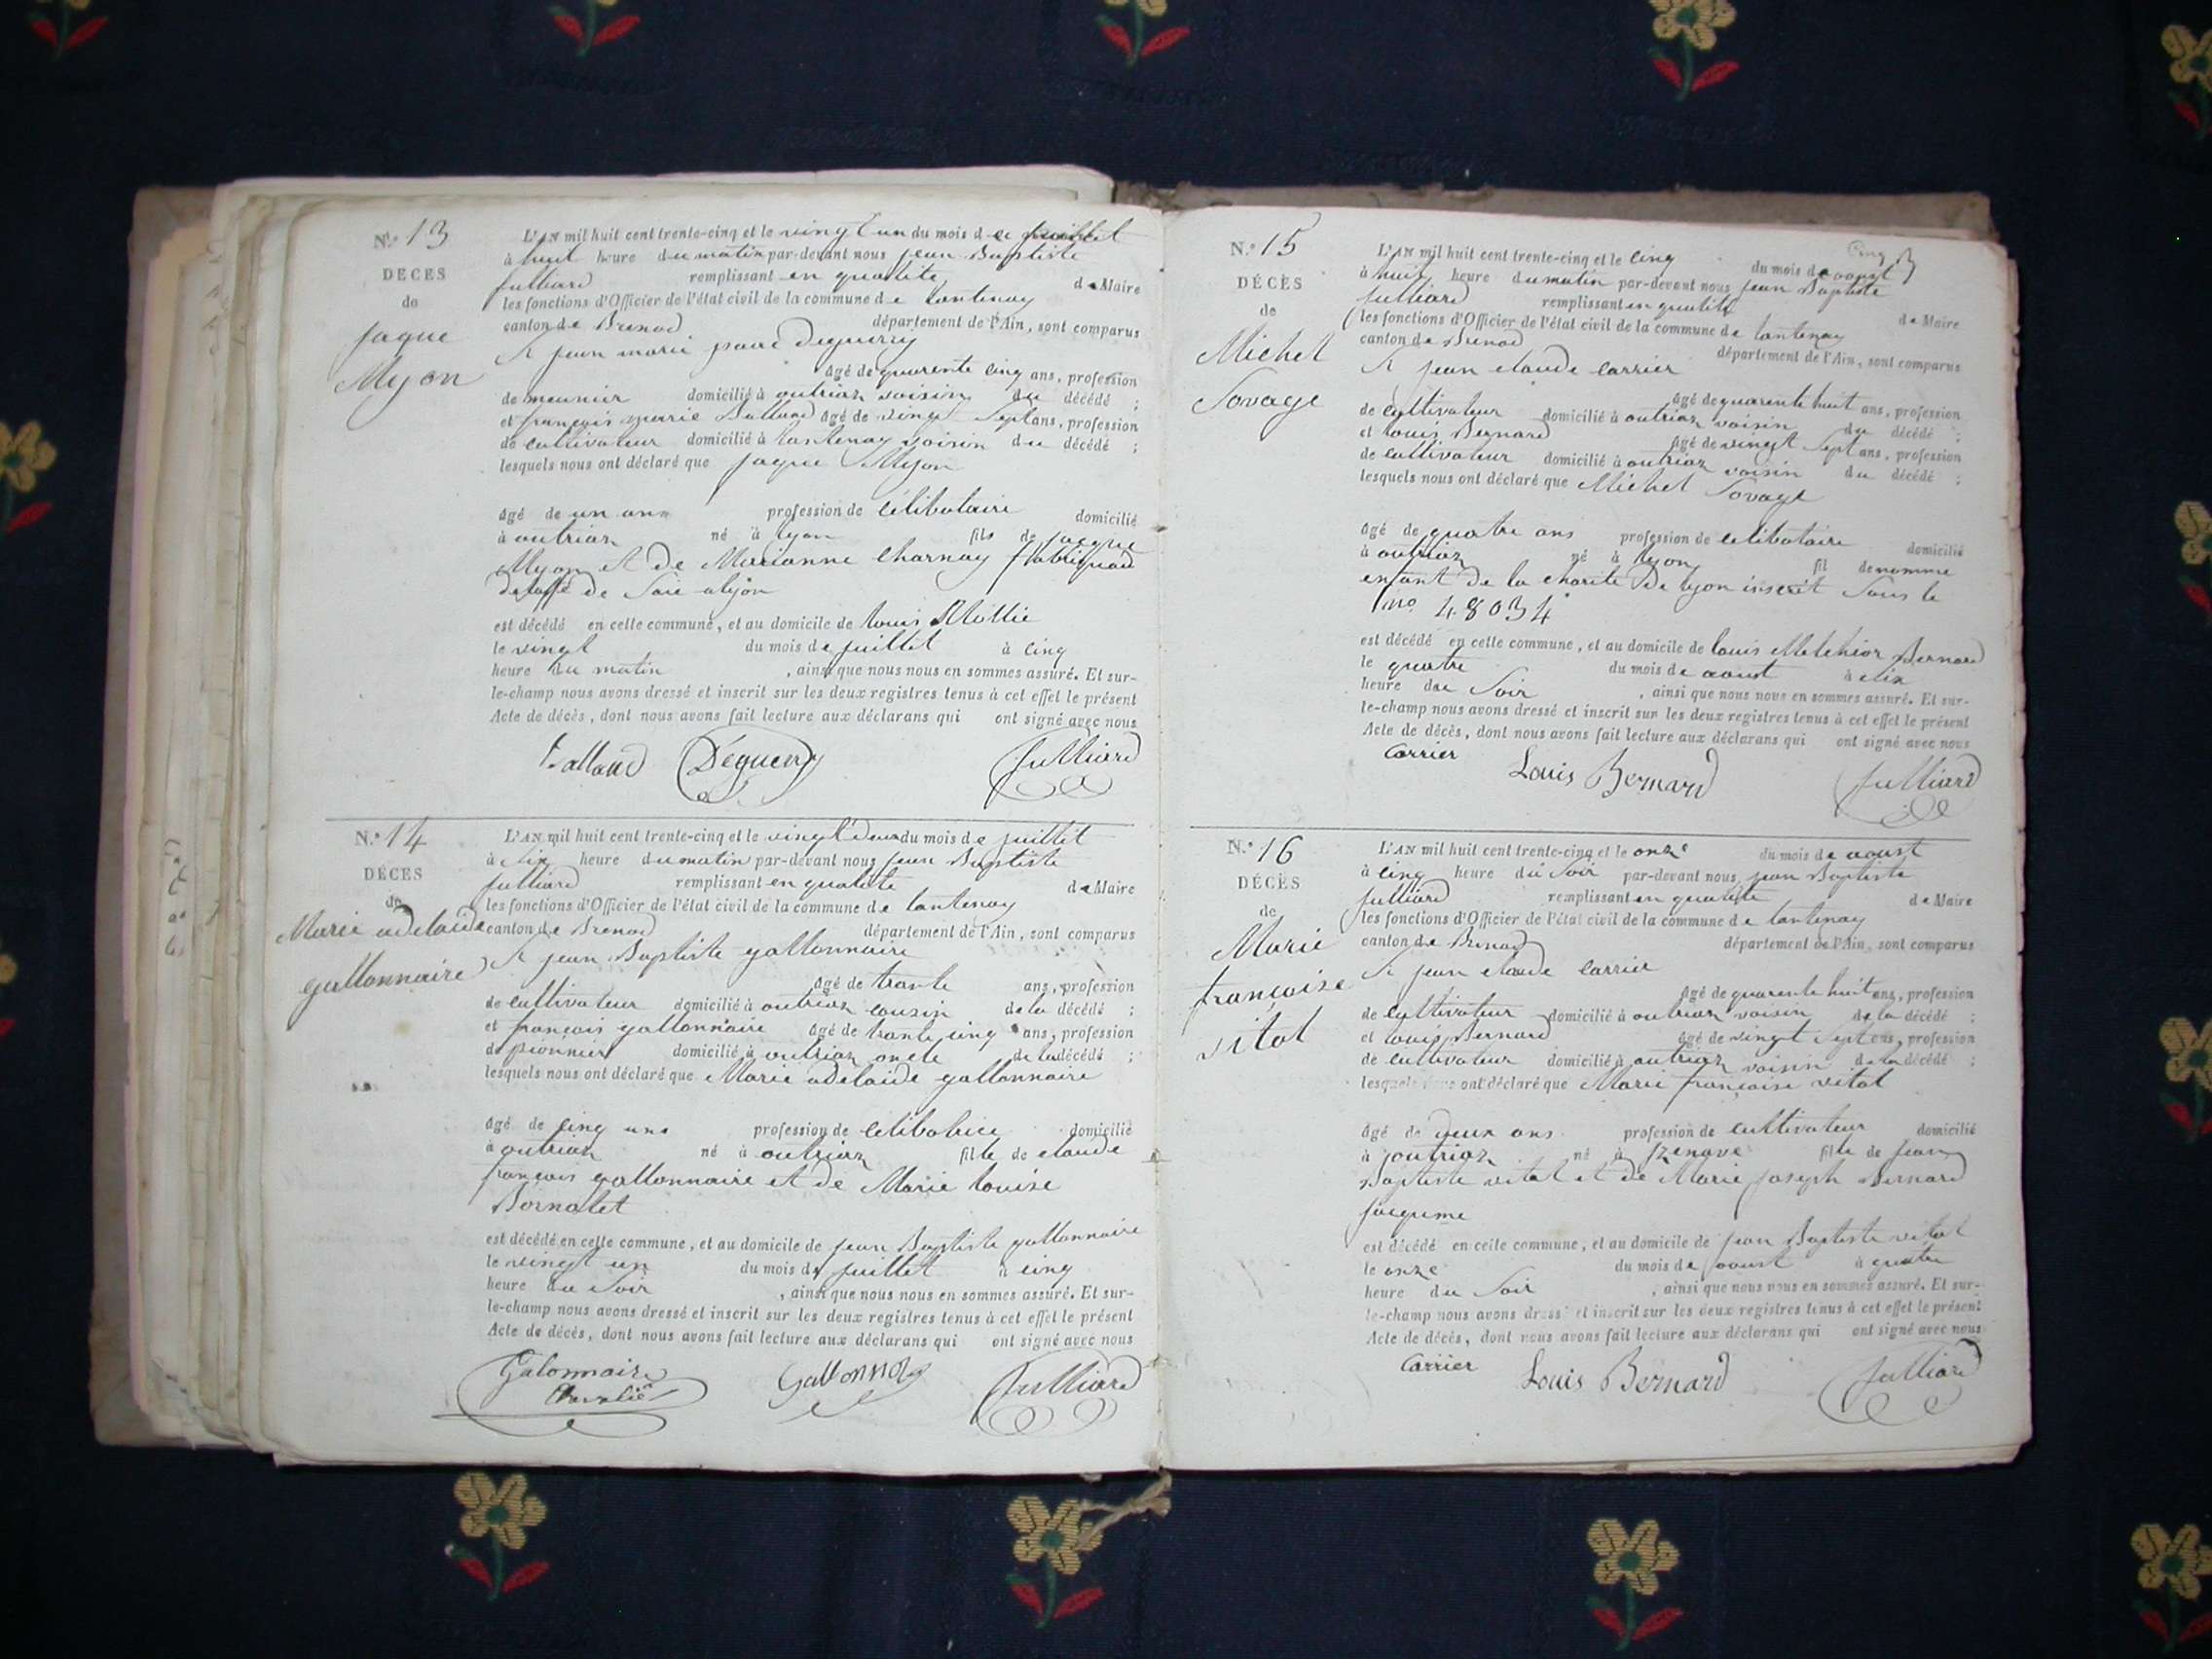 N.° 13
DÉCÈS
de
jaque
Myon
L'AN mil huit cent trente-cinq et le vingt un du mois de juillet
à huit heure du matin par-devant nous jean Baptiste
julliard remplissant en qualité de Maire
les fonctions d'Officier de l'état civil de la commune de lantenay
canton de Brenod département de l'Ain, sont comparus
jean marie Deguerry
agé de quarente cinq ans, profession
de meunier domicilié à outriaz voisin du décédé ;
et françois marie Balland agé de vingt Sept ans, profession
de cultivateur domicilié à lantenay voisin du décédé ;
lesquels nous ont déclaré que jaque Myon
agé de un ans profession de célibataire domicilié
à outriaz né à lyon fils de jacque
Myon et de Marianne Charnay
de Soie a lyon
est décédé en cette commune, et au domicile de louis
le vingt du mois de juillet à cinq
heure du matin , ainsi que nous nous en sommes assuré. Et sur-
le-champ nous avons dressé et inscrit sur les deux registres tenus à cet effet le présent
Acte de décès, dont nous avons fait lecture aux déclarans qui ont signé avec nous
Balland Deguerry Julliard
N.° 14
DÉCÈS
de
Marie adelaide
gallonnaire
L'AN mil huit cent trente-cinq et le vingt deux du mois de juillet
à six heure du matin par-devant nous jean Baptiste
julliard remplissant en qualité de Maire
les fonctions d'Officier de l'état civil de la commune de lantenay
canton de Brenod département de l'Ain, sont comparus
jean Baptiste gallonnaire
agé de trante ans, profession
de cultivateur domicilié à outriaz cousin de la décédé ;
et françois gallonnaire agé de trante cinq ans, profession
de pionnier domicilié à outriaz oncle de la décédé ;
lesquels nous ont déclaré que Marie adelaide gallonnaire
agé de cinq ans profession de celibatrice domicilié
à outriaz né à outriaz fille de claude
françois gallonnaire et de Marie louise
Bornatet
est décédé en cette commune, et au domicile de jean Baptiste gallonnaire
le vingt un du mois de juillet à cinq
heure du Soir , ainsi que nous nous en sommes assuré. Et sur-
le-champ nous avons dressé et inscrit sur les deux registres tenus à cet effet le présent
Acte de décès, dont nous avons fait lecture aux déclarans qui ont signé avec nous
Galonnaire Julliard
Cinq
N.° 15
DÉCÈS
de
Michel
Sovage
L'AN mil huit cent trente-cinq et le cinq du mois de aoust
à huit heure du matin par-devant nous jean Baptiste
julliard remplissant en qualité de Maire
les fonctions d'Officier de l'état civil de la commune de lantenay
canton de Brenod département de l'Ain, sont comparus
jean claude carrier
agé de quarente huit ans, profession
de cultivateur domicilié à outriaz voisin du décédé ;
et louis Bernard agé de vingt Sept ans, profession
de cultivateur domicilié à outriaz voisin du décédé ;
lesquels nous ont déclaré que Michel Sovage
agé de quatre ans profession de celibataire domicilié
à outriaz né à lyon fil de nomme
enfant de la charité De lyon inscrit Sous le
no 48034
est décédé en cette commune, et au domicile de louis Melchior Bernard
le quatre du mois de aoust à dix
heure du Soir , ainsi que nous nous en sommes assuré. Et sur-
le-champ nous avons dressé et inscrit sur les deux registres tenus à cet effet le présent
Acte de décès, dont nous avons fait lecture aux déclarans qui ont signé avec nous
Carrier Louis Bernard Julliard
N.° 16
DÉCÈS
de
Marie
françoise
vital
L'AN mil huit cent trente-cinq et le onze du mois de aoust
à cinq heure du Soir par-devant nous jean Baptiste
julliard remplissant en qualité de Maire
les fonctions d'Officier de l'état civil de la commune de lantenay
canton de Brenod département de l'Ain, sont comparus
jean claude carrier
agé de quarente huit ans, profession
de cultivateur domicilié à outriaz voisin de la décédé ;
et louis Bernard agé de vingt Sept ans, profession
de cultivateur domicilié à outriaz voisin de la décédé ;
lesquels nous ont déclaré que Marie françoise vital
agé de deux ans profession de cultivateur domicilié
à outriaz né à izenave fille de jean
Baptiste vital et de Marie joseph Bernard
est décédé en cette commune, et au domicile de jean Baptiste vital
le onze du mois de aoust à quatre
heure du Soir , ainsi que nous nous en sommes assuré. Et sur-
le-champ nous avons dressé et inscrit sur les deux registres tenus à cet effet le présent
Acte de décès, dont nous avons fait lecture aux déclarans qui ont signé avec nous
Carrier Louis Bernard Julliard